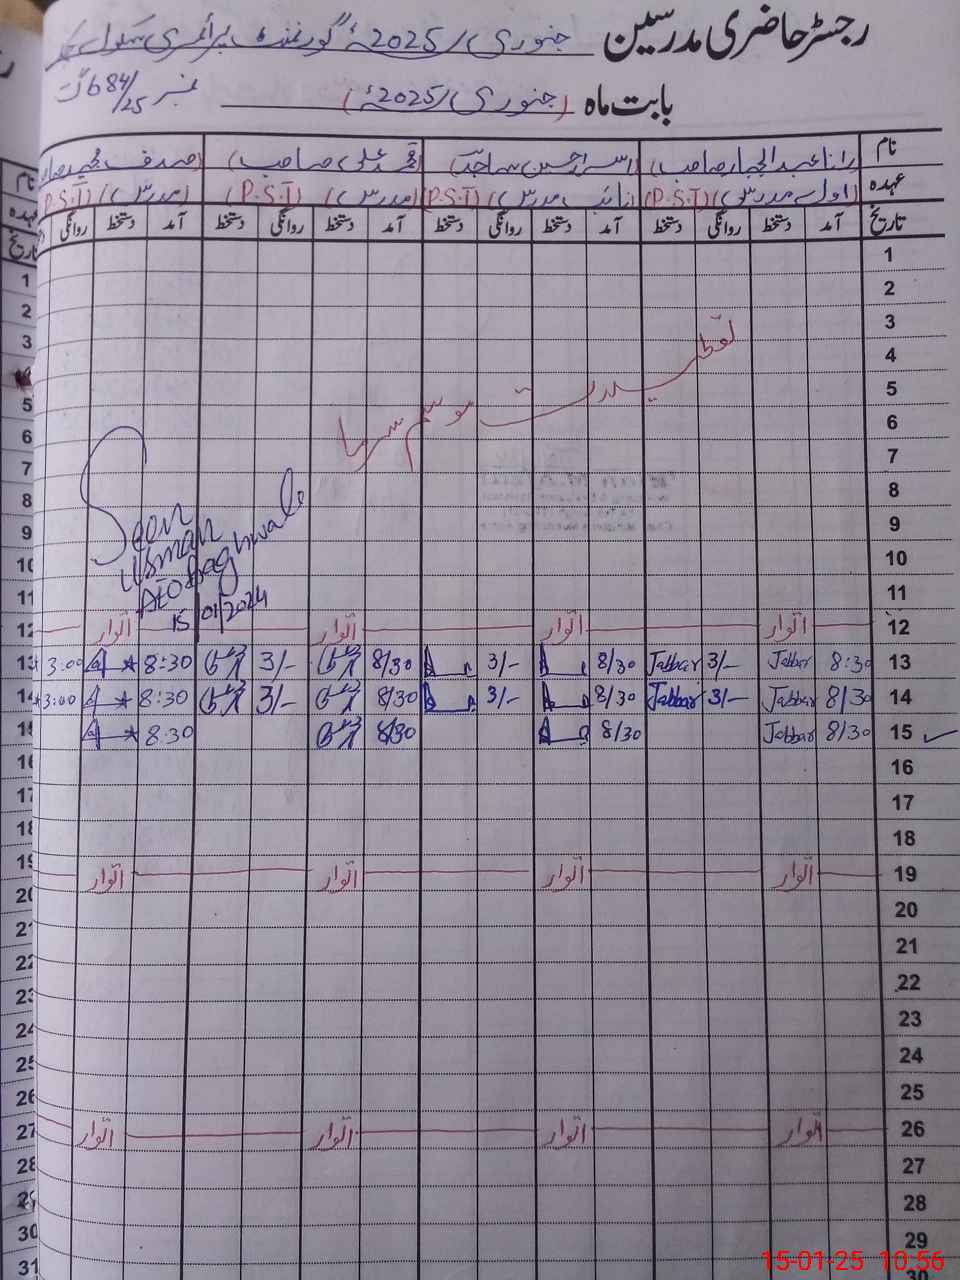 رجسٹر حاضری مدرسین جنوری/2025ء گورنمنٹ پرائمری سکول چک
بابت ماہ (جنوری/2025ء) نمبر 684/25 گ ب
نام (رانا عبدالجبار صاحب) (اسرار حسین ساجد) (محمد علی صاحب) (صدف
عہدہ (اول مدرس) (P.S.T) (نائب مدرس) (P.S.T) (مدرس) (P.S.T) (مدرس) (P.S.T)
تاریخ آمد دستخط روانگی دستخط آمد دستخط روانگی دستخط آمد دستخط روانگی دستخط آمد دستخط روانگی
1
2
3
4
5
تعطیلات موسم سرما
6
7
8
9
10
11
Seen
Usman
AEO Baghwala
15/01/2024
12 اتوار اتوار اتوار اتوار
13 8:30 Jabbar 3/- Jabbar 8/30 3/- 8/30 3/- 8:30 3:00
14 8/30 Jabbar 3/- Jabbar 8/30 3/- 8/30 3/- 8:30 3:00
15 8/30 Jabbar 8/30 8/30 8:30
16
17
18
19 اتوار اتوار اتوار اتوار
20
21
22
23
24
25
26 اتوار اتوار اتوار اتوار
27
28
29
30
15-01-25 10:56